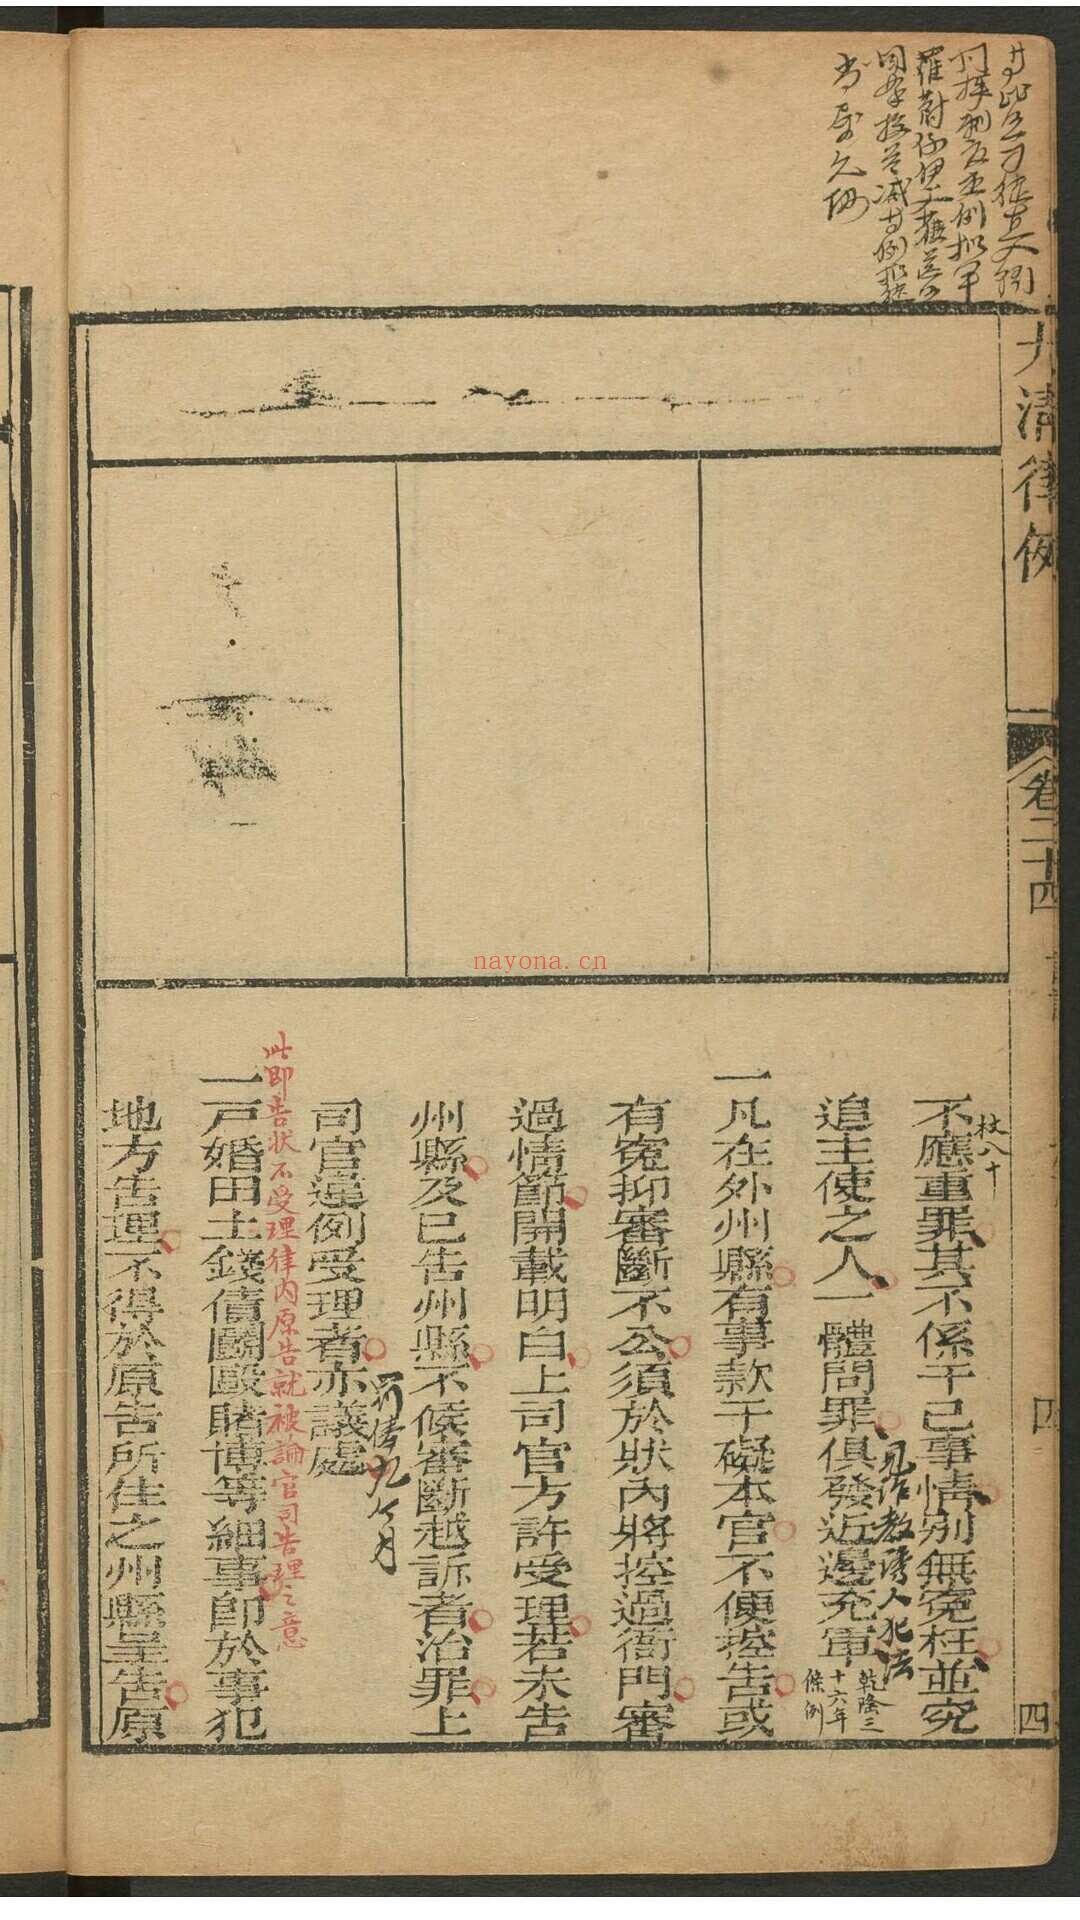 大清律例
卷二十四
四
四
杖八十
不應重罪其不係干己事情別無冤枉並究
追主使之人一體問罪俱發近邊充軍
乾隆三
十六年
條例
見作教誘人犯法
一凡在外州縣有事款干礙本官不便控告或
有冤抑審斷不公須於狀內將控過衙門審
過情節開載明白上司官方許受理若未告
州縣及已告州縣不候審斷越訴者治罪上
司官違例受理者亦議處
罰俸九个月
此即告状不受理律内原告就被論官司告理之意
一戸婚田土錢債鬬毆賭博等細事卽於事犯
地方告理不得於原告所住之州縣呈告原
nayona.cn